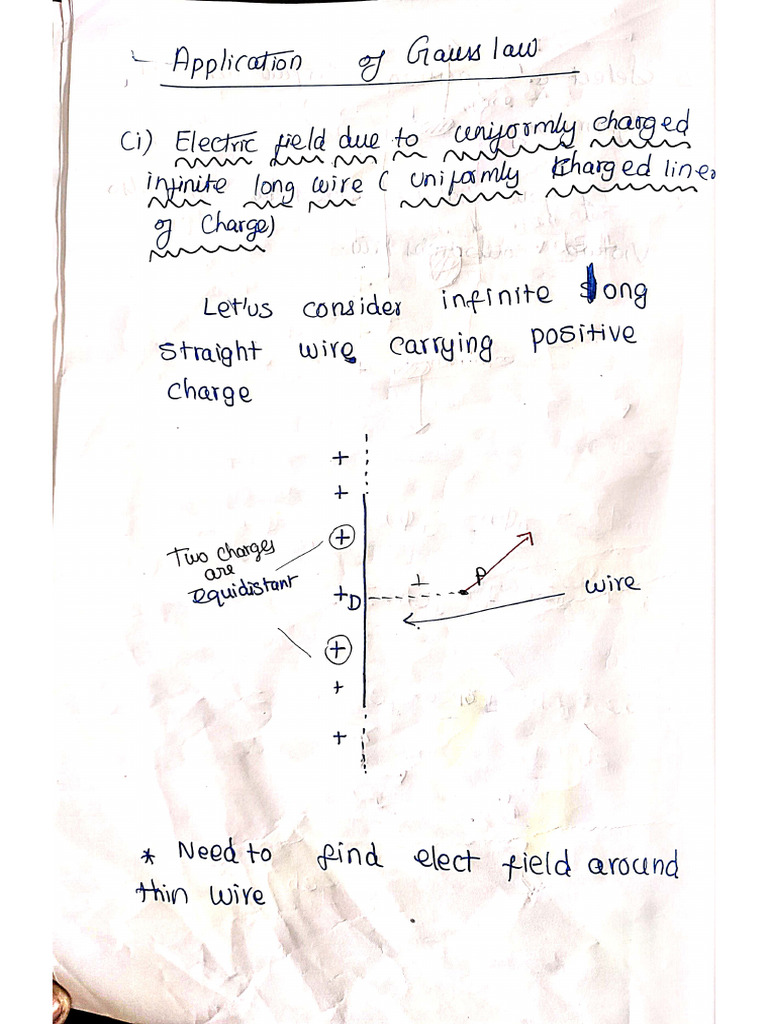 Application of Gauss law
(i) Electric field due to uniformly charged
infinite long wire ( uniformly charged line
of Charge)
Let'us consider infinite long
straight wire carrying positive
charge
+
+
+
Two charges
are
equidistant
+D
P
wire
+
+
+
* Need to find elect field around
thin wire